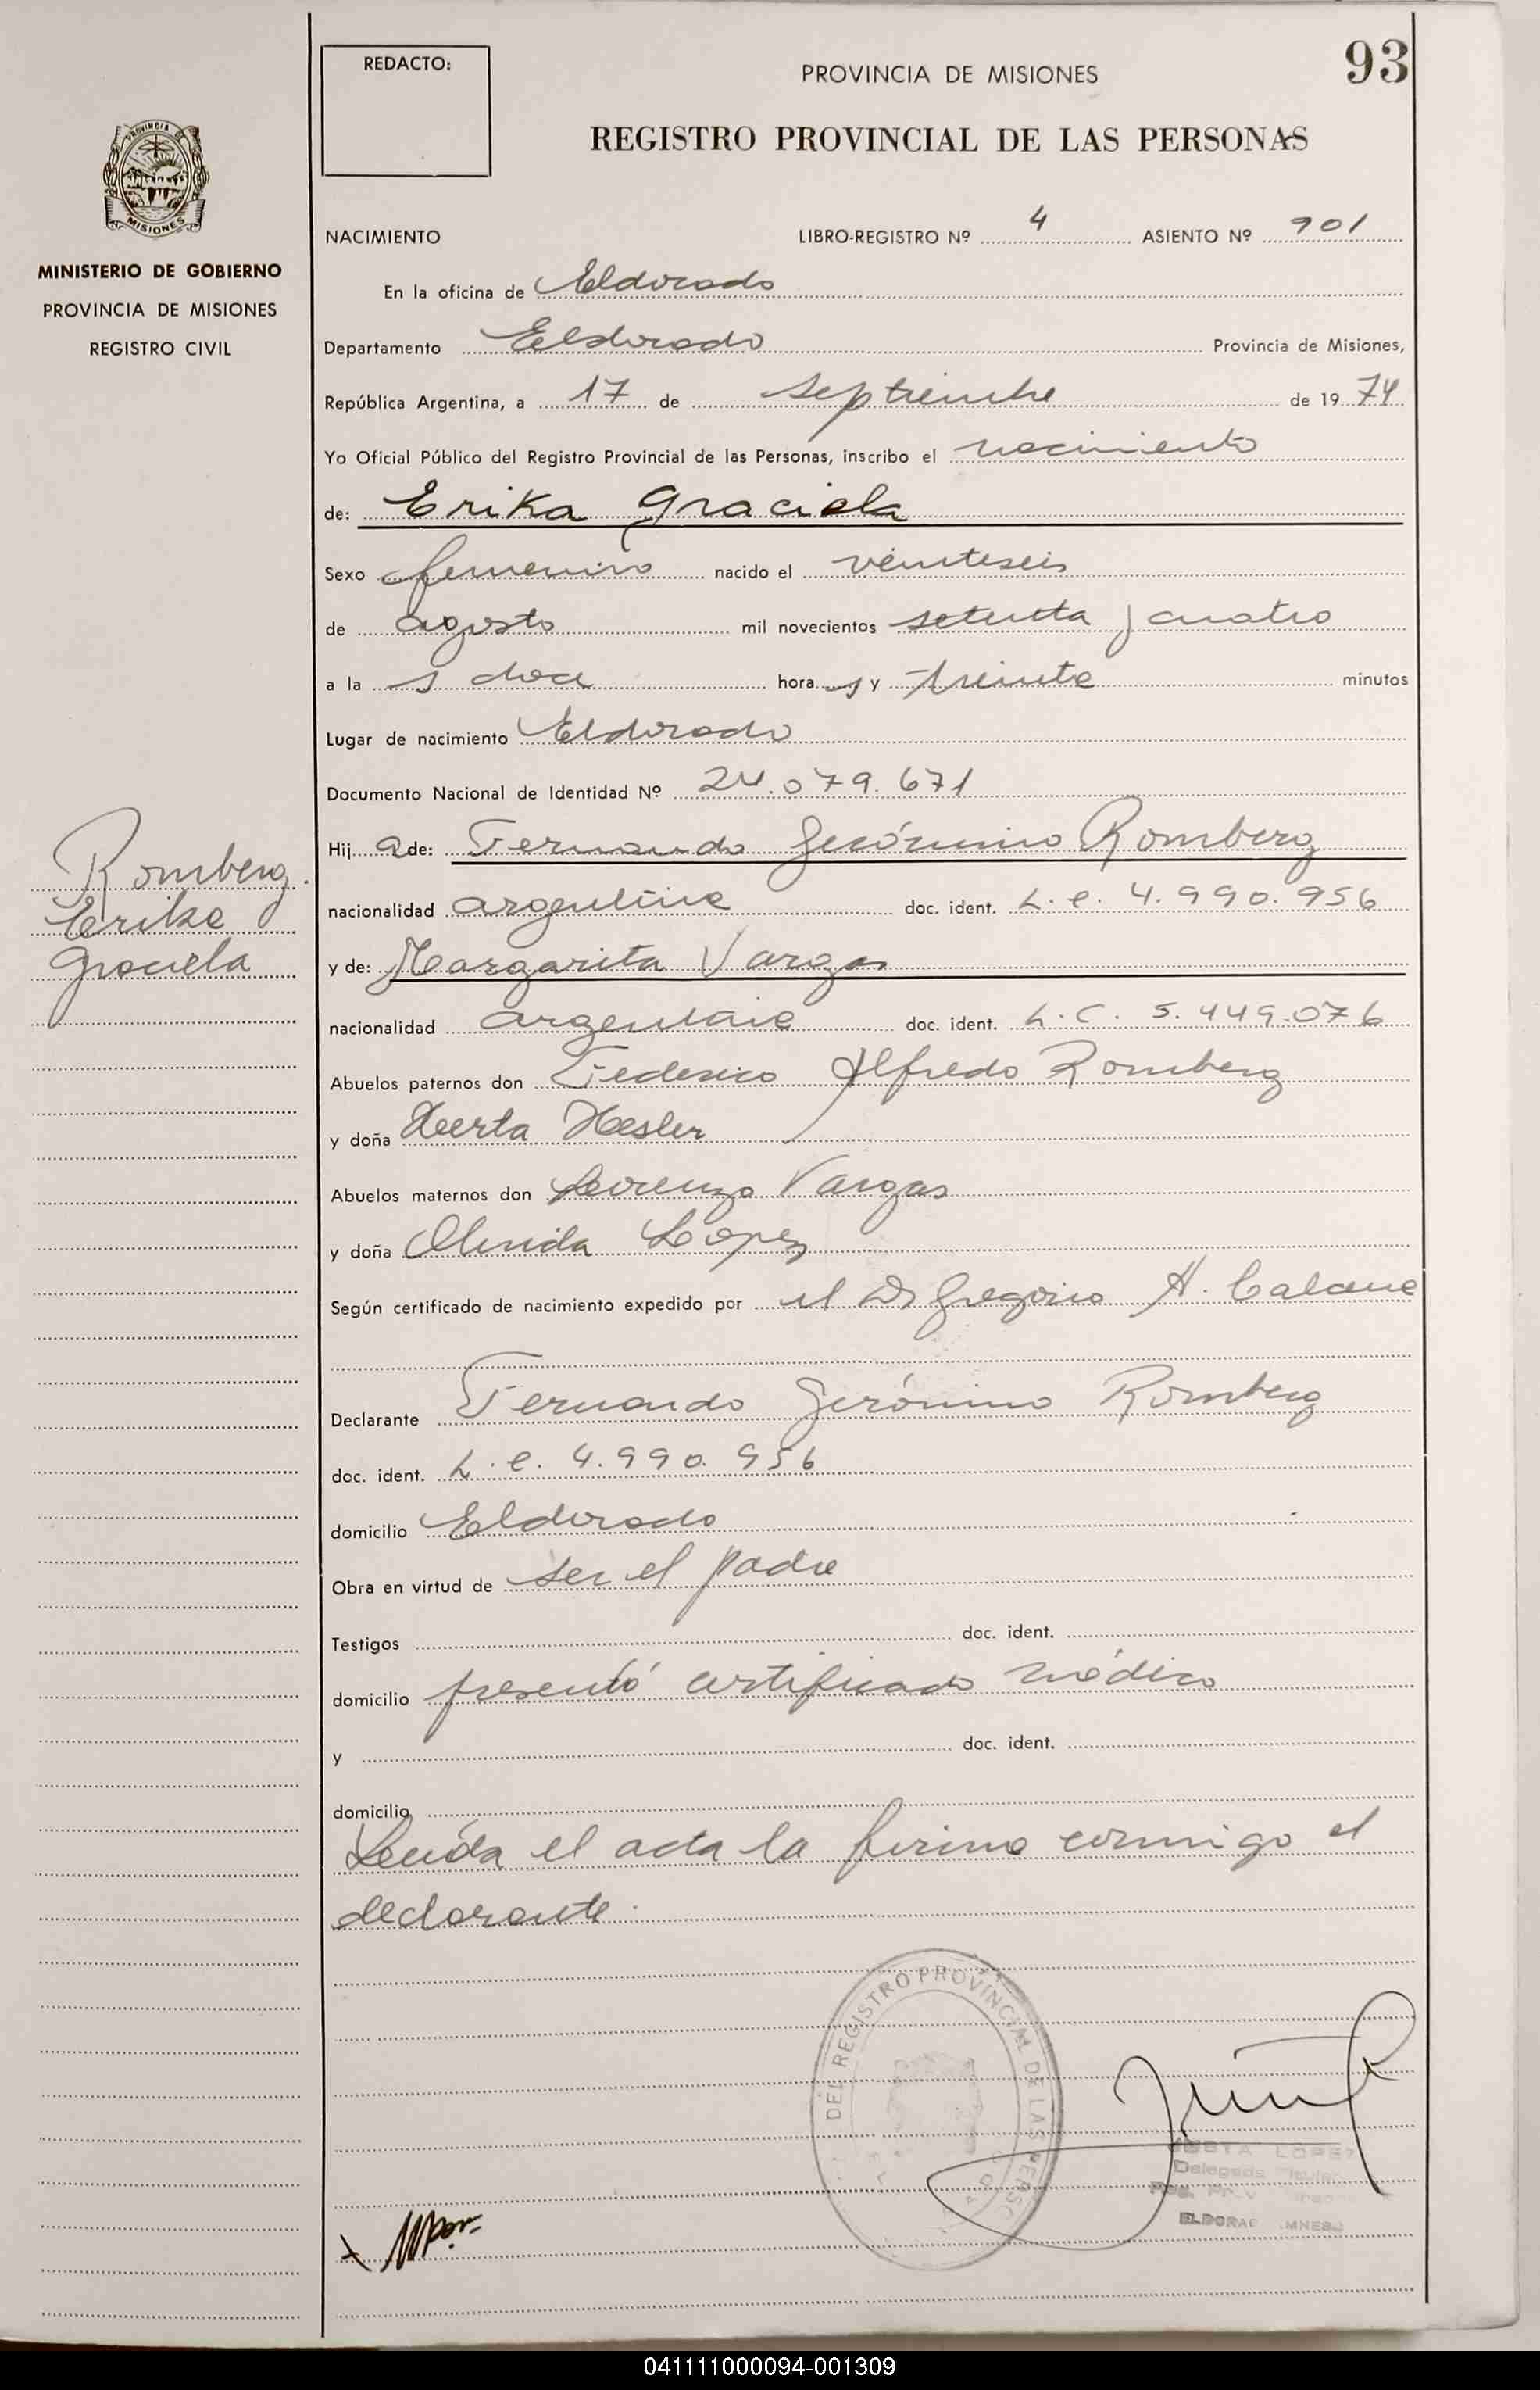 REDACTO:
PROVINCIA DE MISIONES
93
REGISTRO PROVINCIAL DE LAS PERSONAS
PROVINCIA DE
MISIONES
MINISTERIO DE GOBIERNO
PROVINCIA DE MISIONES
REGISTRO CIVIL
NACIMIENTO LIBRO-REGISTRO Nº 4 ASIENTO Nº 901
En la oficina de Eldorado
Departamento Eldorado Provincia de Misiones,
República Argentina, a 17 de septiembre de 1974
Yo Oficial Público del Registro Provincial de las Personas, inscribo el nacimiento
de: Erika Graciela
Sexo femenino nacido el veintiseis
de agosto mil novecientos setenta y cuatro
a las doce horas y treinta minutos
Lugar de nacimiento Eldorado
Documento Nacional de Identidad Nº 24.079.671
Hija de: Fernando Gerónimo Romberg
Romberg
Erika
Graciela
nacionalidad argentina doc. ident. L.e. 4.990.956
y de: Margarita Vargas
nacionalidad argentina doc. ident. L.C. 5.449.076
Abuelos paternos don Federico Alfredo Romberg
y doña Herta Hesler
Abuelos maternos don Lorenzo Vargas
y doña Lopez
Según certificado de nacimiento expedido por el Dr Gregorio A.
Declarante Fernando Gerónimo Romberg
doc. ident. L.e. 4.990.956
domicilio Eldorado
Obra en virtud de ser el padre
Testigos doc. ident.
domicilio presentó certificado médico
y doc. ident.
domicilio
Leída el acta la firma conmigo el
declarante.
DEL REGISTRO PROVINCIAL DE LAS PERSO
LOPEZ
Delegada Titular
041111000094-001309